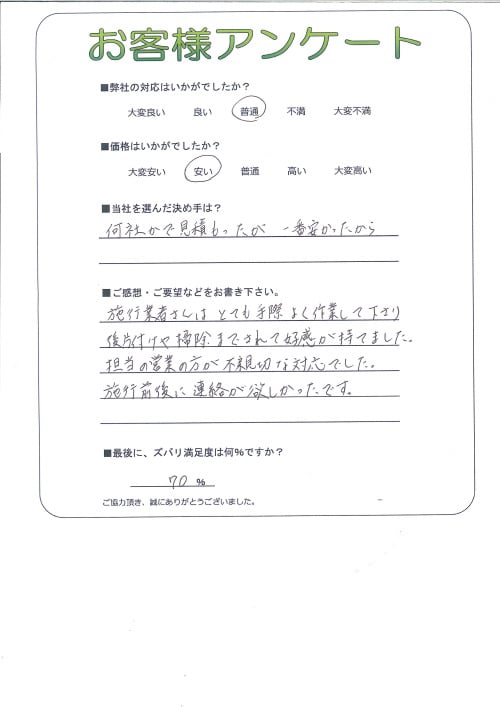 お客様アンケート
■弊社の対応はいかがでしたか？
大変良い 良い 普通 不満 大変不満
■価格はいかがでしたか？
大変安い 安い 普通 高い 大変高い
■当社を選んだ決め手は？
何社かで見積もったが 一番安かったから
■ご感想・ご要望などをお書き下さい。
施行業者さんは とても手際よく作業して下さり
後片付けや掃除までされて好感が持てました。
担当の営業の方が不親切な対応でした。
施行前後に連絡が欲しかったです。
■最後に、ズバリ満足度は何％ですか？
70 %
ご協力頂き、誠にありがとうございました。